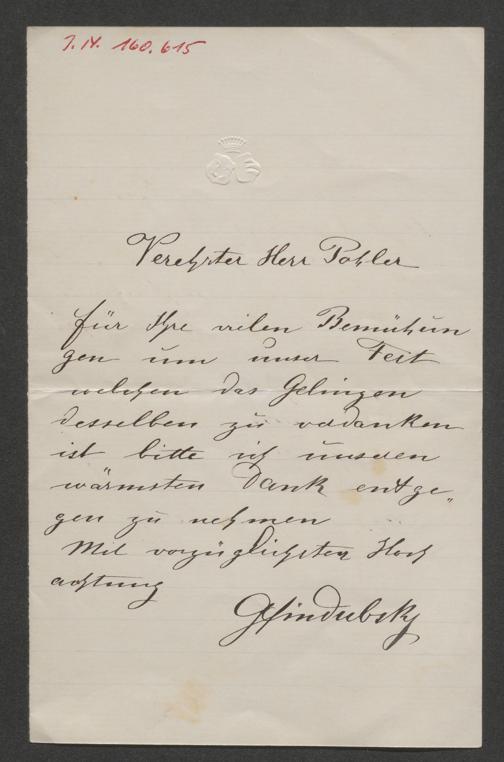 J.N. 160.615
Verehrter Herr Pohler
für Ihre vielen Bemühun
gen um unser Fest
welchen das Gelingen
desselben zu verdanken
ist bitte ich unseren
wärmsten Dank entge„
gen zu nehmen
Mit vorzüglichster Hoch
achtung